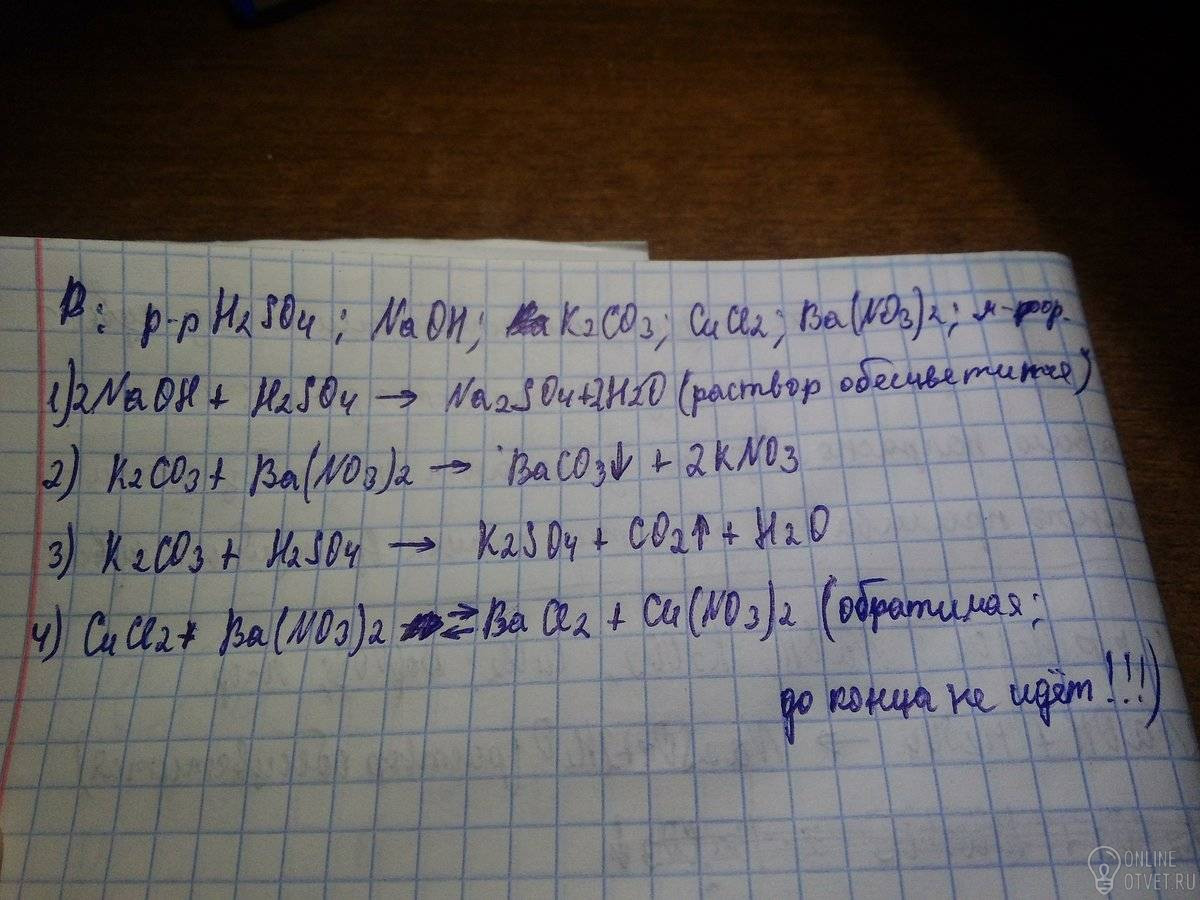 В: р-р H2SO4; NaOH; K2CO3; CuCl2; Ba(NO3)2;
1) 2NaOH + H2SO4 → Na2SO4+2H2O (раствор обесцветился)
2) K2CO3 + Ba(NO3)2 → BaCO3↓ + 2KNO3
3) K2CO3 + H2SO4 → K2SO4 + CO2↑ + H2O
4) CuCl2+ Ba(NO3)2 ⇄ BaCl2 + Cu(NO3)2 (обратимая;
до конца не идёт!!!)
ONLINE
OTVET.RU